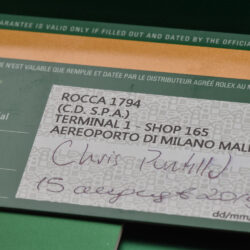 UARANTEE IS VALID ONLY IF FILLED OUT AND DATED BY THE OFFICIAL
NE N'EST VALABLE QUE REMPLIE ET DATÉE PAR LE DISTRIBUTEUR AGRÉÉ ROLEX AU M
ROCCA 1794
(C.D. S.P.A.)
TERMINAL 1 - SHOP 165
AEREOPORTO DI MILANO MAL
Chris
15
dd/mm